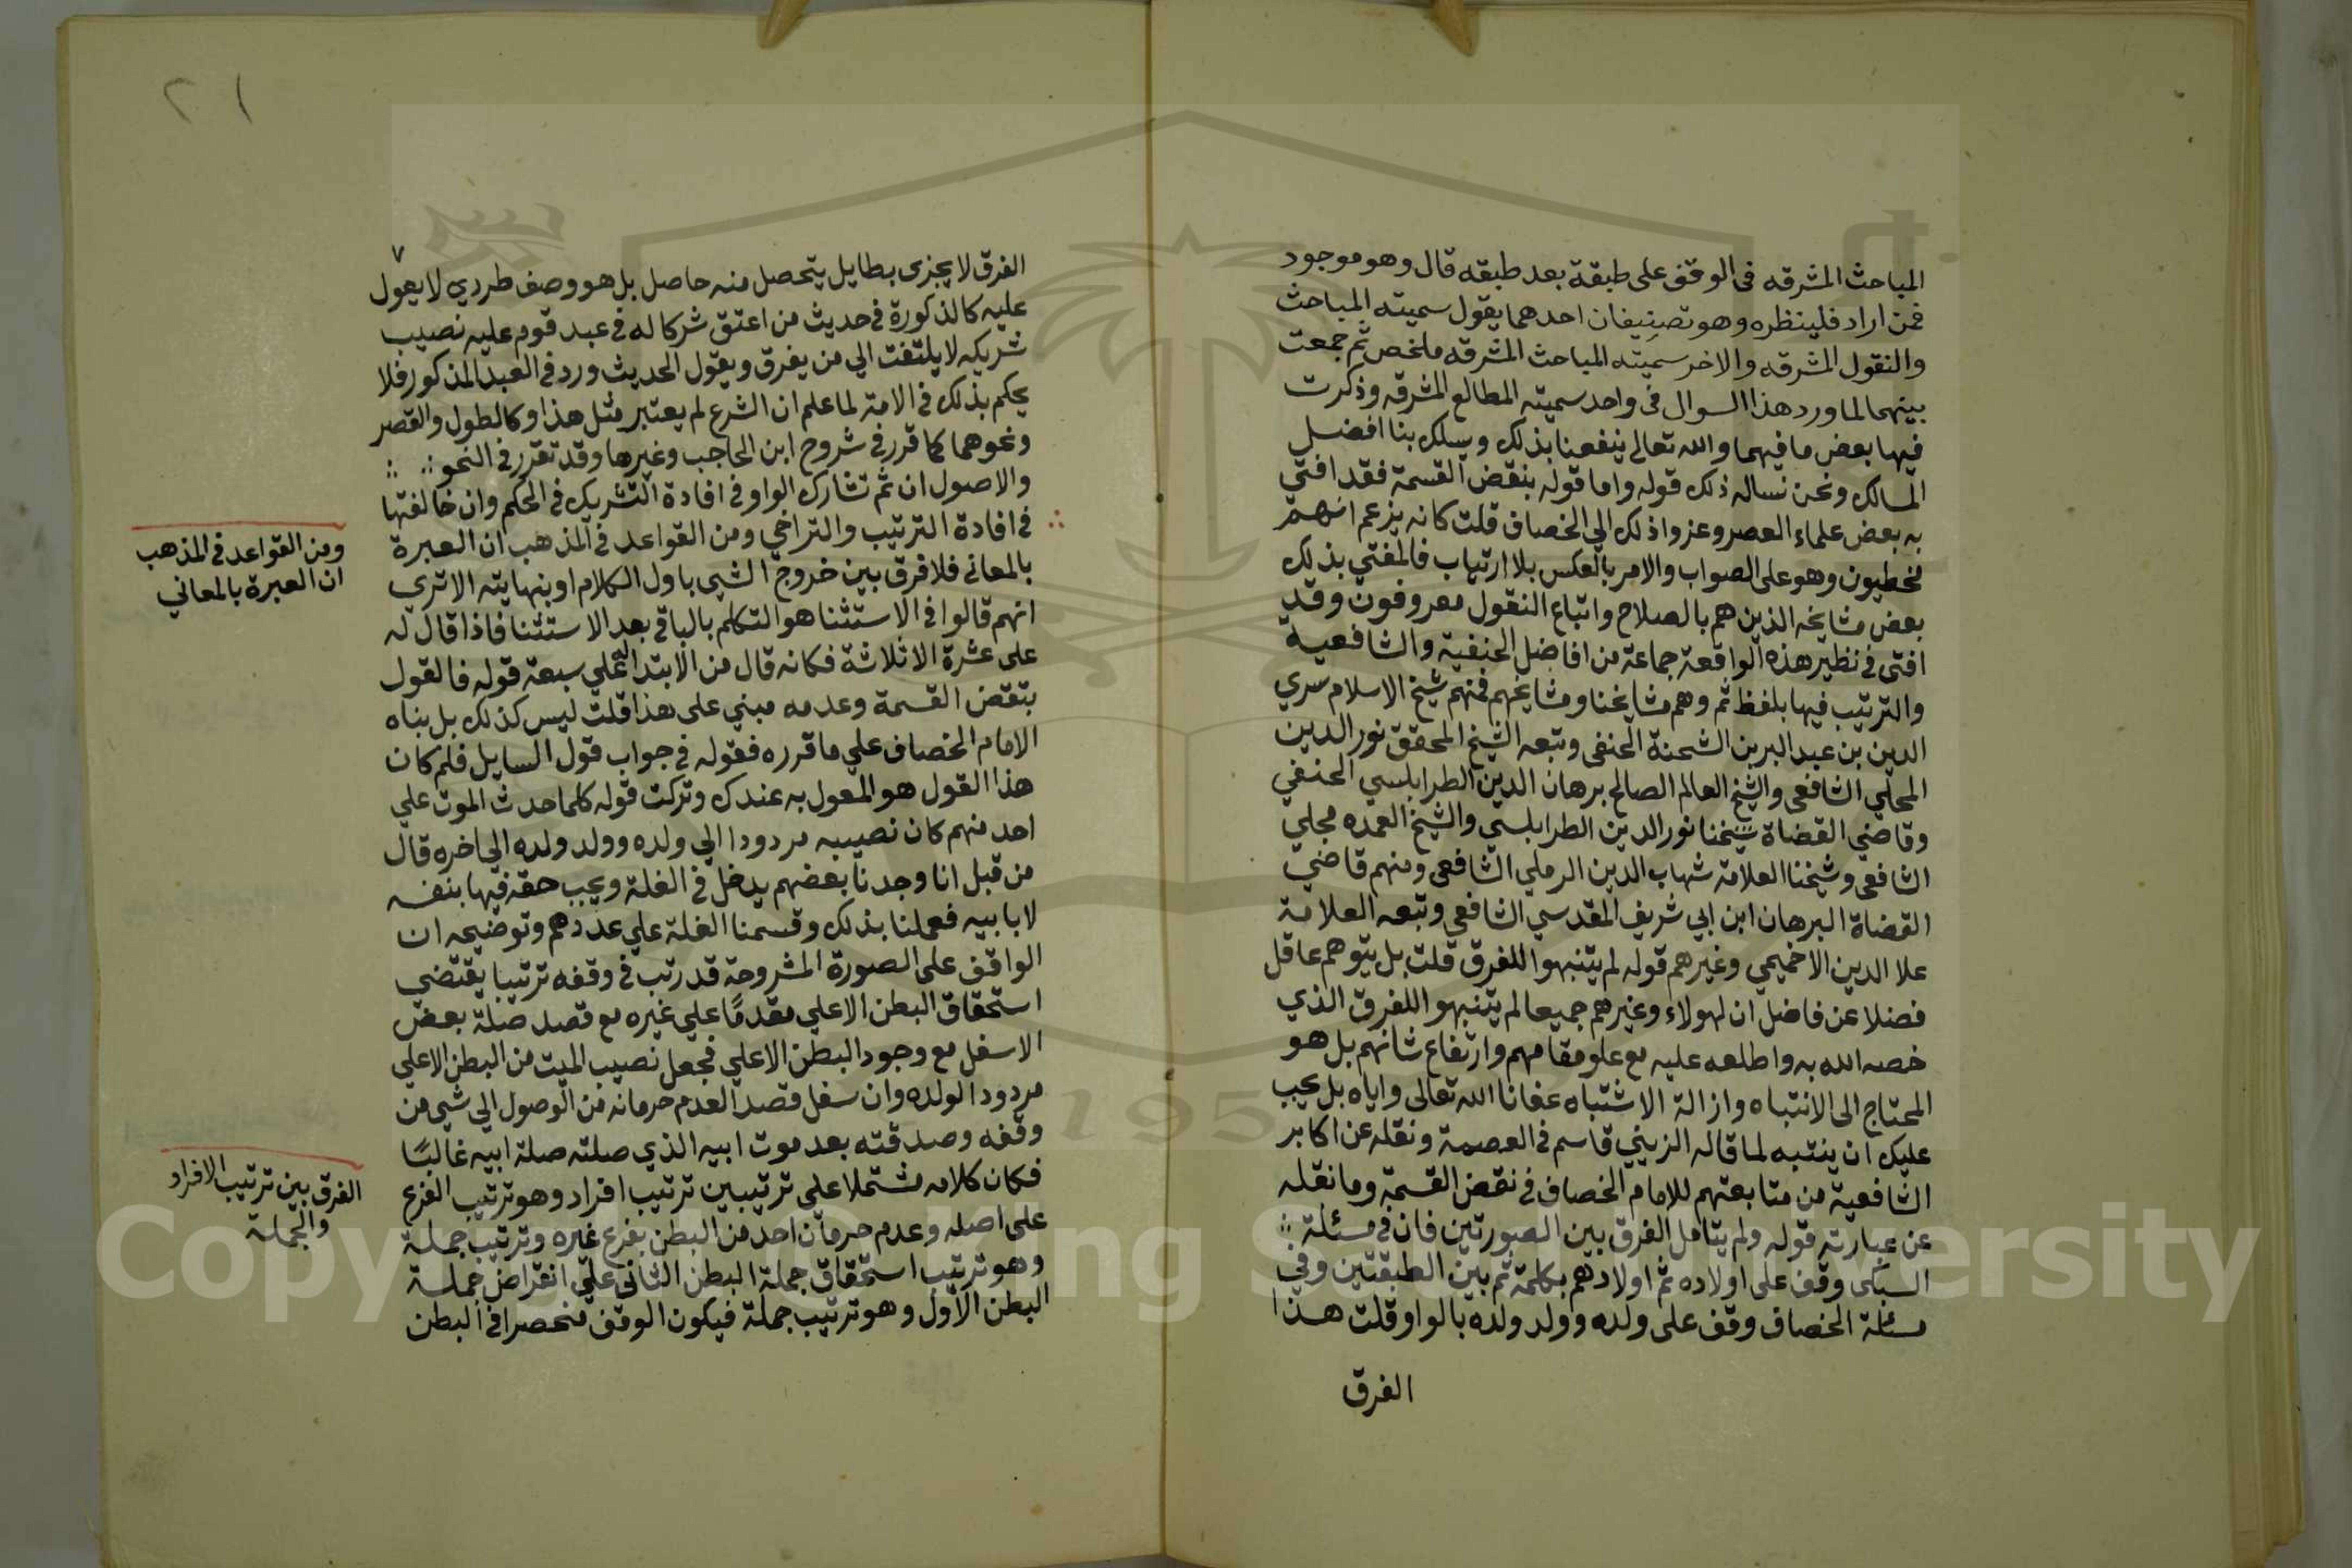 المباحث المشرقه فى الوقف على طبقة بعد طبقه قال وهو موجود
فمن اراد فلينظره وهو تصنيفان احدهما يقول سميته المباحث
والنقول المشرقه والاخر سميته المباحث المشرقه ملخص ثم جمعت
بينهما لما ورد هذا السوال فى واحد سميته المطالع المشرقه وذكرت
فيها بعض ما فيهما والله تعالى ينفعنا بذلك ويسلك بنا افضل
المسالك ونحن نساله ذلك قوله واما قوله بنقض القسمة فقد افتى
به بعض علماء العصر وعزوا ذلك الي الخصاف قلت كانه يزعم انهم
مخطيون وهو على الصواب والامر بالعكس بلا ارتياب فالمفتي بذلك
بعض مشايخه الذين هم بالصلاح واتباع النقول معروفون وقد
افتى فى نظير هذه الواقعة جماعة من افاضل الحنفية والشافعية
والترتيب فيها بلفظ ثم وهم مشايخنا ومشايخهم فمنهم شيخ الاسلام سري
الدين بن عبد البر بن الشحنة الحنفى وتبعه الشيخ المحقق نور الدين
المحلي الشافعى والشيخ العالم الصالح برهان الدين الطرابلسي الحنفي
وقاضي القضاة شيخنا نور الدين الطرابلسي والشيخ العمده مجلي
الشافعى وشيخنا العلامة شهاب الدين الرملي الشافعى ومنهم قاضي
القضاة البرهان ابن ابي شريف المقدسي الشافعى وتبعه العلامة
علا الدين الاخميمي وغيرهم قوله لم يتنبهوا للفرق قلت بل يتوهم عاقل
فضلا عن فاضل ان لهولاء وغيرهم جميعا لم يتنبهوا للفرق الذي
خصه الله به واطلعه عليه مع علو مقامهم وارتفاع شانهم بل هو
المحتاج الى الانتباه وازالة الاشتباه عفانا الله تعالى واياه بل يجب
عليك ان ينتبه لما قاله الزيني قاسم فى العصمة ونقله عن اكابر
الشافعية من متابعتهم للامام الخصاف فى نقض القسمة وما نقله
عن عبارته قوله ولم يتامل الفرق بين الصورتين فان فى مسئلة
السبكى وقف على اولاده ثم اولادهم بكلمة ثم بين الطبقتين وفي
مسئلة الخصاف وقف على ولده وولد ولده بالواو قلت هذا
الفرق
٢١
٧
الفرق لا يجزى بطايل يتحصل منه حاصل بل هو وصف طردي لا يعول
عليه كالذكورة فى حديث من اعتق شركا له فى عبد قوم عليه نصيب
شريكه لا يلتفت الي من يفرق ويقول الحديث ورد فى العبد المذكور فلا
يحكم بذلك فى الامة لما علم ان الشرع لم يعتبر مثل هذا وكالطول والقصر
ونحوهما كما قرر فى شروح ابن الحاجب وغيرها وقد تقرر فى النحو
والاصول ان ثم تشارك الواو فى افادة التشريك فى الحكم وان خالفتها
فى افادة الترتيب والتراخي ومن القواعد فى المذهب ان العبرة
بالمعانى فلا فرق بين خروج الشي باول الكلام او بنهايته الا ترى
انهم قالوا فى الاستثنا هو التكلم بالباقي بعد الاستثنا فاذا قال له
على عشرة الا ثلاثة فكانه قال من الابتدا له علي سبعة قوله فالقول
بنقض القسمة وعدمه مبني على هذا قلت ليس كذلك بل بناه
الامام الخصاف علي ما قرره فقوله فى جواب قول السايل فلم كان
هذا القول هو المعول به عندك وتركت قوله كلما حدث الموت علي
احد منهم كان نصيبه مردودا الي ولده وولد ولده الي اخره قال
من قبل انا وجدنا بعضهم يدخل فى الغلة ويجب حقه فيها بنفسه
لا بابيه فعملنا بذلك وقسمنا الغلة علي عددهم وتوضيحه ان
الواقف على الصورة المشروحة قد رتب فى وقفه ترتيبا يقتضي
استحقاق البطن الاعلي مقدمًا علي غيره مع قصد صلة بعض
الاسفل مع وجود البطن الاعلي فجعل نصيب الميت من البطن الاعلي
مردود الولده وان سفل قصد العدم حرمانه من الوصول الي شي من
وقفه وصدقته بعد موت ابيه الذي صلته صلة ابيه غالبًا
فكان كلامه مشتملا على ترتيبين ترتيب افراد وهو ترتيب الفرع
على اصله وعدم حرمان احد من البطن بفرع غيره وترتيب جملة
وهو ترتيب استحقاق جملة البطن الثانى علي انقراض جملة
البطن الاول وهو ترتيب جملة فيكون الوقف منحصرا فى البطن
ومن القواعد فى المذهب
ان العبرة بالمعاني
الفرق بين ترتيب الافراد
والجملة
Copyright © King Saud University
195